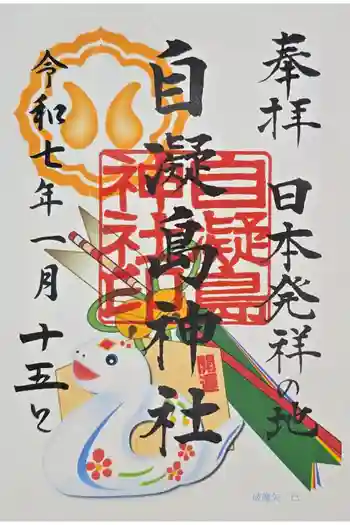 奉拝
日本発祥の地
自凝島神社
自凝島
神社印
令和七年一月十五日
開運
破魔矢 巳